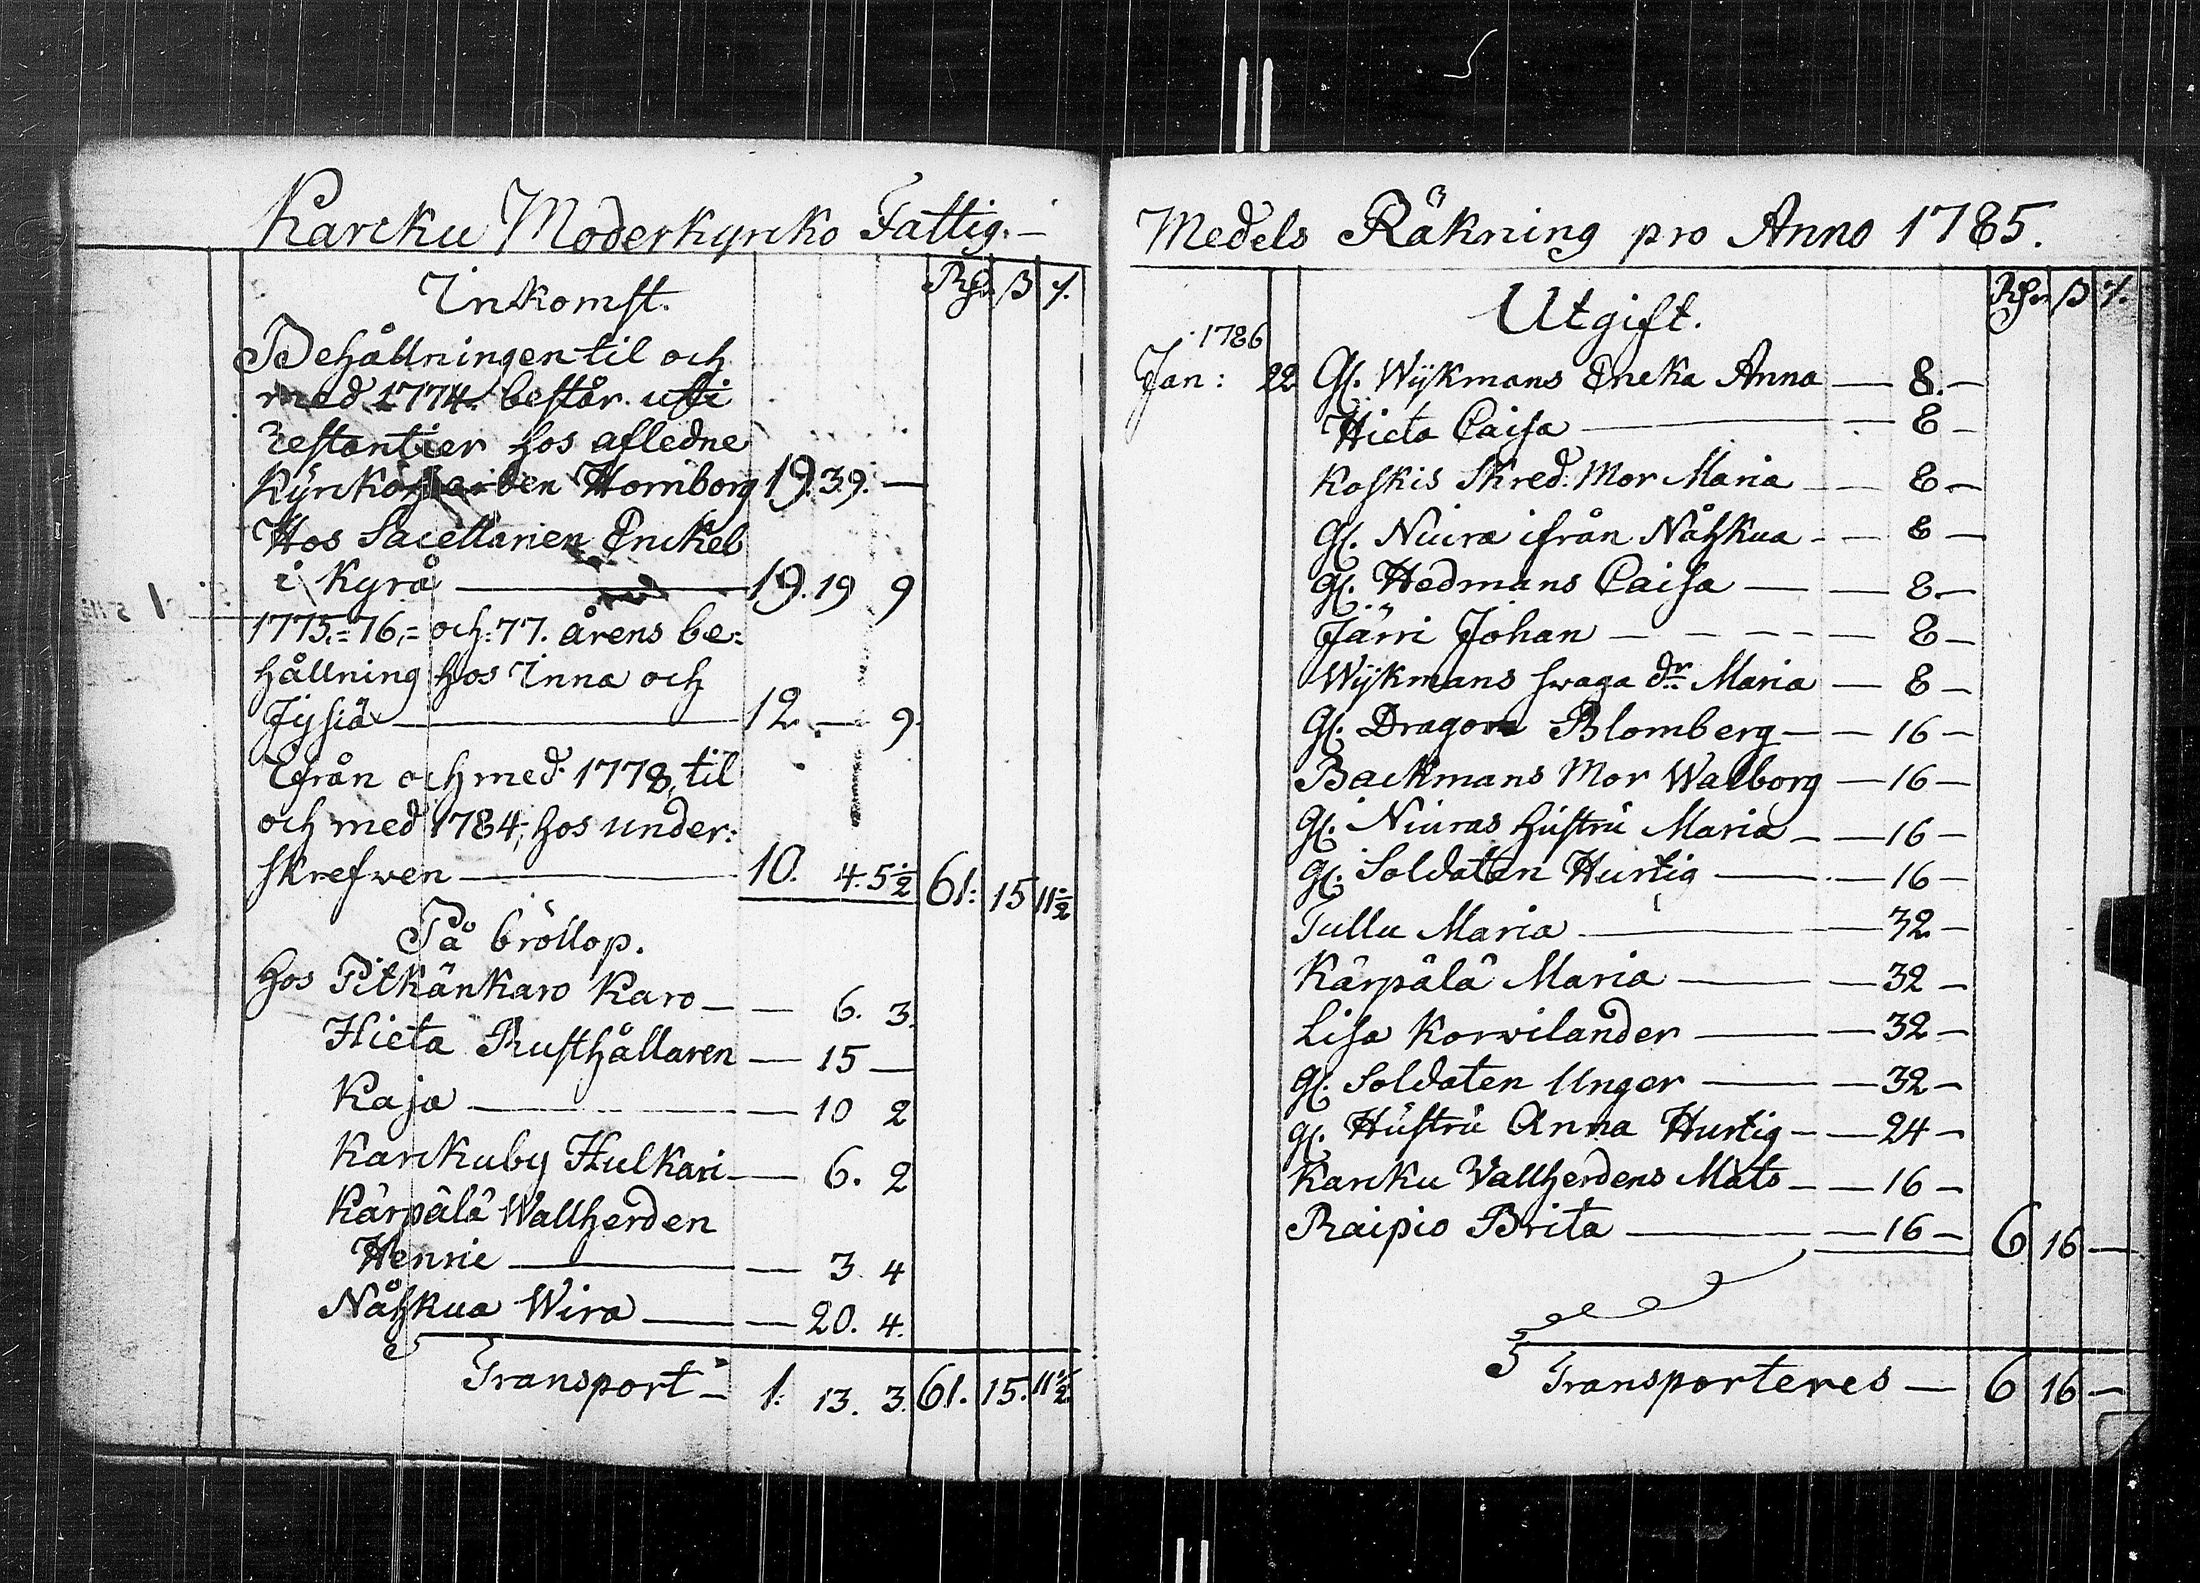 Karcku Moderkyrko Fattig.-
Inkomst. Rdr ß /.
Behållningen til och
med 1774. består uti
restantier hos afledne
Kyrkoherden Homborg 19. 39. —
Hos Sacellanien Enckel
i Kyrå — 19. 19 9
1775.= 76,= och: 77. årens be:
hållning hos Inna och
Jysiä — 12. — 9.
Ifrån och med 1778, til
och med 1784, hos under:
skrefwen — 10. 4. 5½ 61: 15 11½
På bröllop.
hos Pitkänkaro Karo — — 6. 3.
Hieta Rusthållaren — 15 —
Kaja — — 10 2
Karckuby Hulkari — — 6. 2
Kärpälä Wallherden
Henric — — 3. 4
Nåhkua Wira — — 20. 4.
Transport — 1. 13. 3. 61. 15. 11½
Medels Räkning pro Anno 1785.
Utgift. Rdr ß /.
1786
Jan: 22 Gl. Wijkmans Encka Anna — 8. —
Hieta Caisa — 8 —
Koskis Skred. Mor Maria — — 8 —
Gl. Niura ifrån Nåhkua — — 8 —
Gl. Hedmans Caisa — — 8. —
Järri Johan — — — — — 8 —
Wijkmans swaga dr. Maria — 8 —
Gl. Dragon Blomberg — — 16 —
Backmans Mor Walborg — 16 —
Gl. Niuras hustru Maria — — 16 —
Gl. Soldaten Hurtig — — 16 —
Tullu Maria — — 32 —
Kärpälä Maria — — 32 —
Lisa Korvilander — — 32 —
Gl. Soldaten Unger — — 32 —
Gl. Hustru Anna Hurtig — — 24 —
Karcku Vallherdens Mats — — 16 —
Raipio Brita — — 16 — 6 16 —
Transporteres — 6 16 —